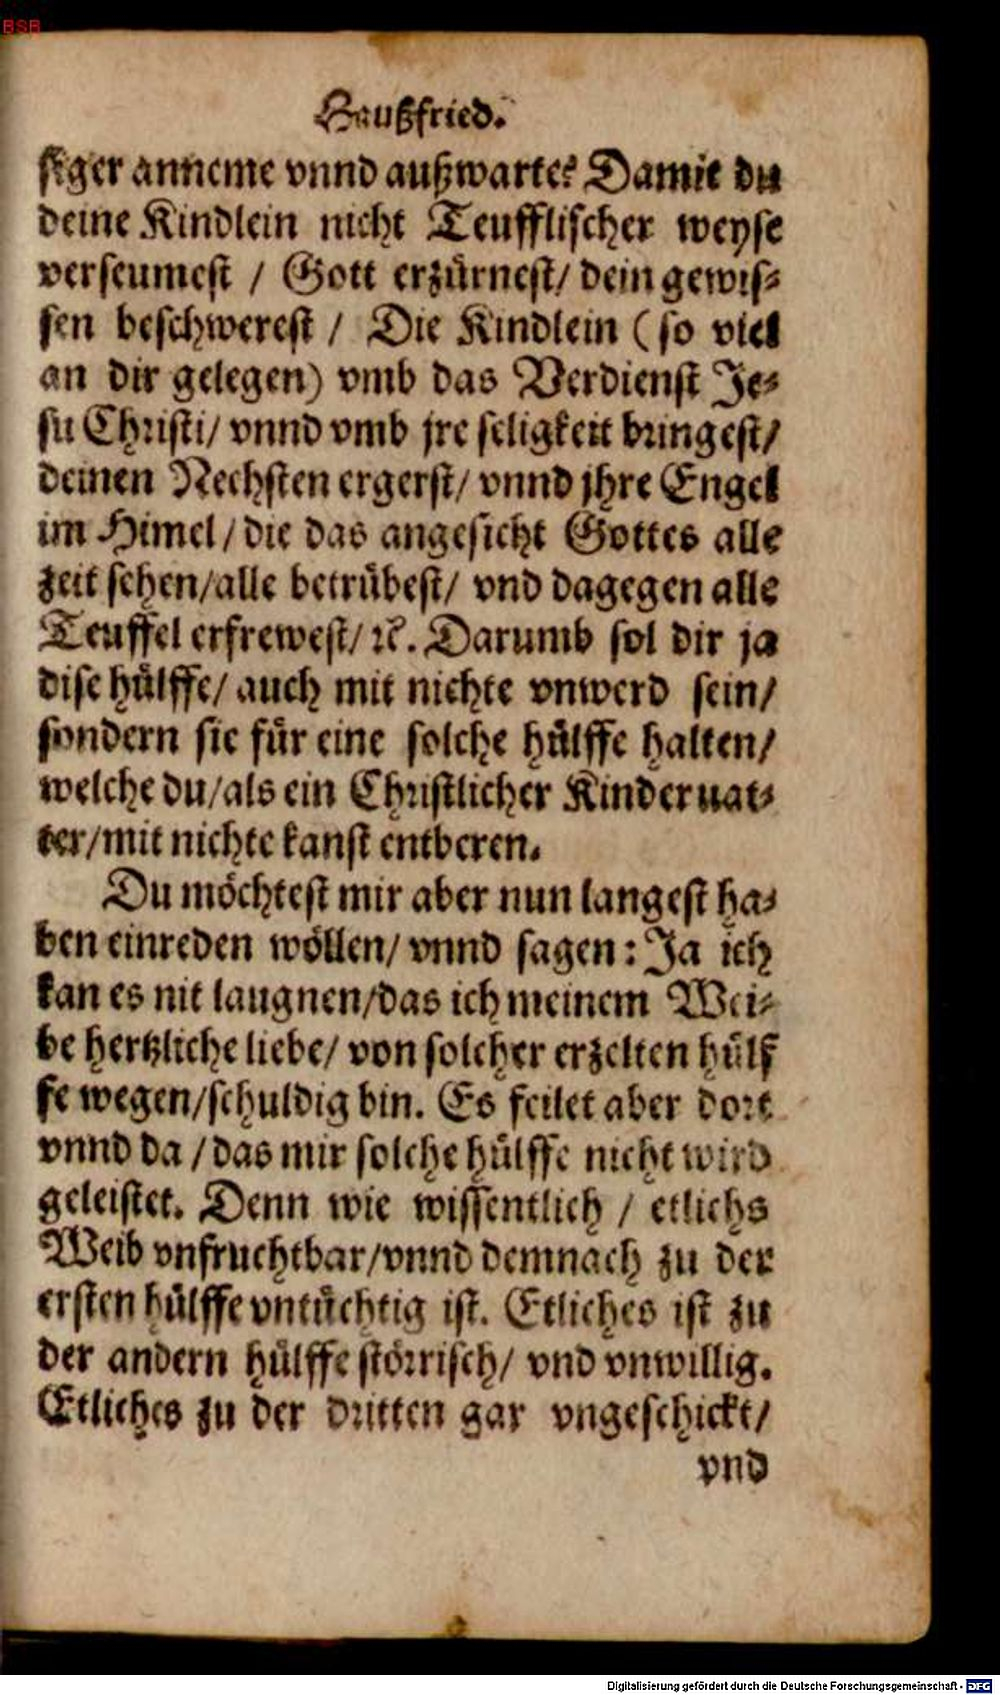 BSB
Haußfried.
siger anneme vnnd außwarte? Damit du
deine Kindlein nicht Teufflischer weyse
verseumest / Gott erzürnest/ dein gewis-
sen beschwerest / Die Kindlein (so viel
an dir gelegen) vmb das Verdienst Je-
su Christi/ vnnd vmb jre seligkeit bringest/
deinen Nechsten ergerst/ vnnd jhre Engel
im Himel/ die das angesicht Gottes alle
zeit sehen/alle betrübest/ vnd dagegen alle
Teuffel erfrewest/ ꝛc. Darumb sol dir ja
dise hülffe/ auch mit nichte vnwerd sein/
sondern sie für eine solche hülffe halten/
welche du/als ein Christlicher Kinderuat-
ter/mit nichte kanst entberen.
Du möchtest mir aber nun langest ha-
ben einreden wöllen/ vnnd sagen: Ja ich
kan es nit laugnen/das ich meinem Wei-
be hertzliche liebe/ von solcher erzelten hülf
fe wegen/schuldig bin. Es feilet aber dort
vnnd da /das mir solche hülffe nicht wird
geleistet. Denn wie wissentlich / etlichs
Weib vnfruchtbar/vnnd demnach zu der
ersten hülffe vntüchtig ist. Etliches ist zu
der andern hülffe störrisch/ vnd vnwillig.
Etliches zu der dritten gar vngeschickt/
vnd
Digitalisierung gefördert durch die Deutsche Forschungsgemeinschaft - DFG